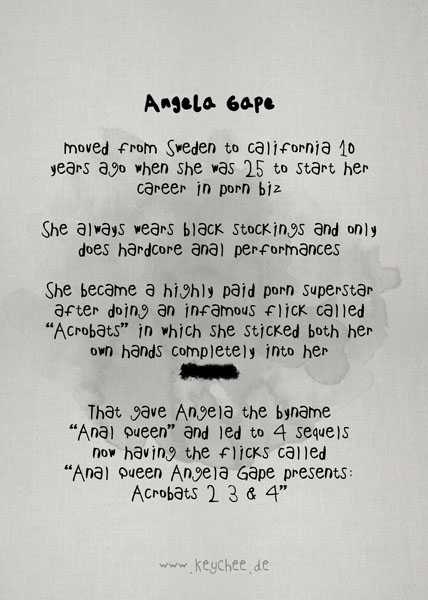 Angela Gape
moved from Sweden to california 10
years ago when she was 25 to start her
career in porn biz
She always wears black stockings and only
does hardcore anal performances
She became a highly paid porn superstar
after doing an infamous flick called
"Acrobats" in which she sticked both her
own hands completely into her
That gave Angela the byname
"Anal Queen" and led to 4 sequels
now having the flicks called
"Anal Queen Angela Gape presents:
Acrobats 2 3 & 4"
www.keychee.de